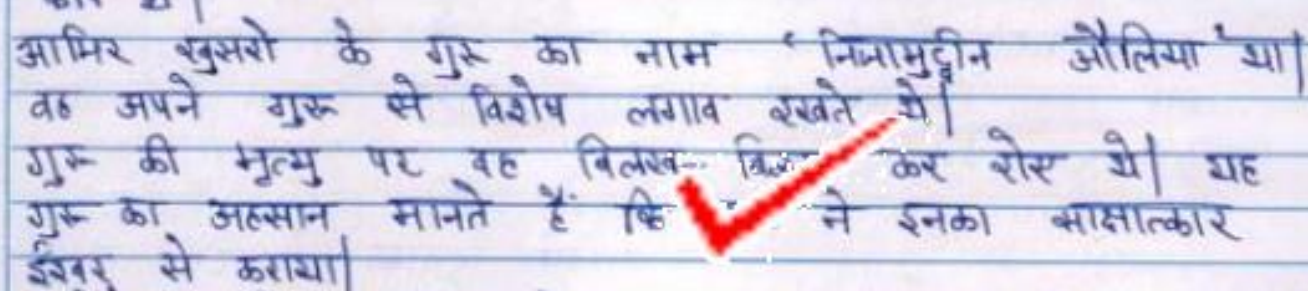 आमिर खुसरो के गुरू का नाम 'निजामुद्दीन औलिया' था|
वह अपने गुरू से विशेष लगाव रखते थे|
गुरू की मृत्यु पर वह बिलख कर रोए थे| यह
गुरू का अहसान मानते हैं कि ने इनका साक्षात्कार
ईश्वर से कराया|